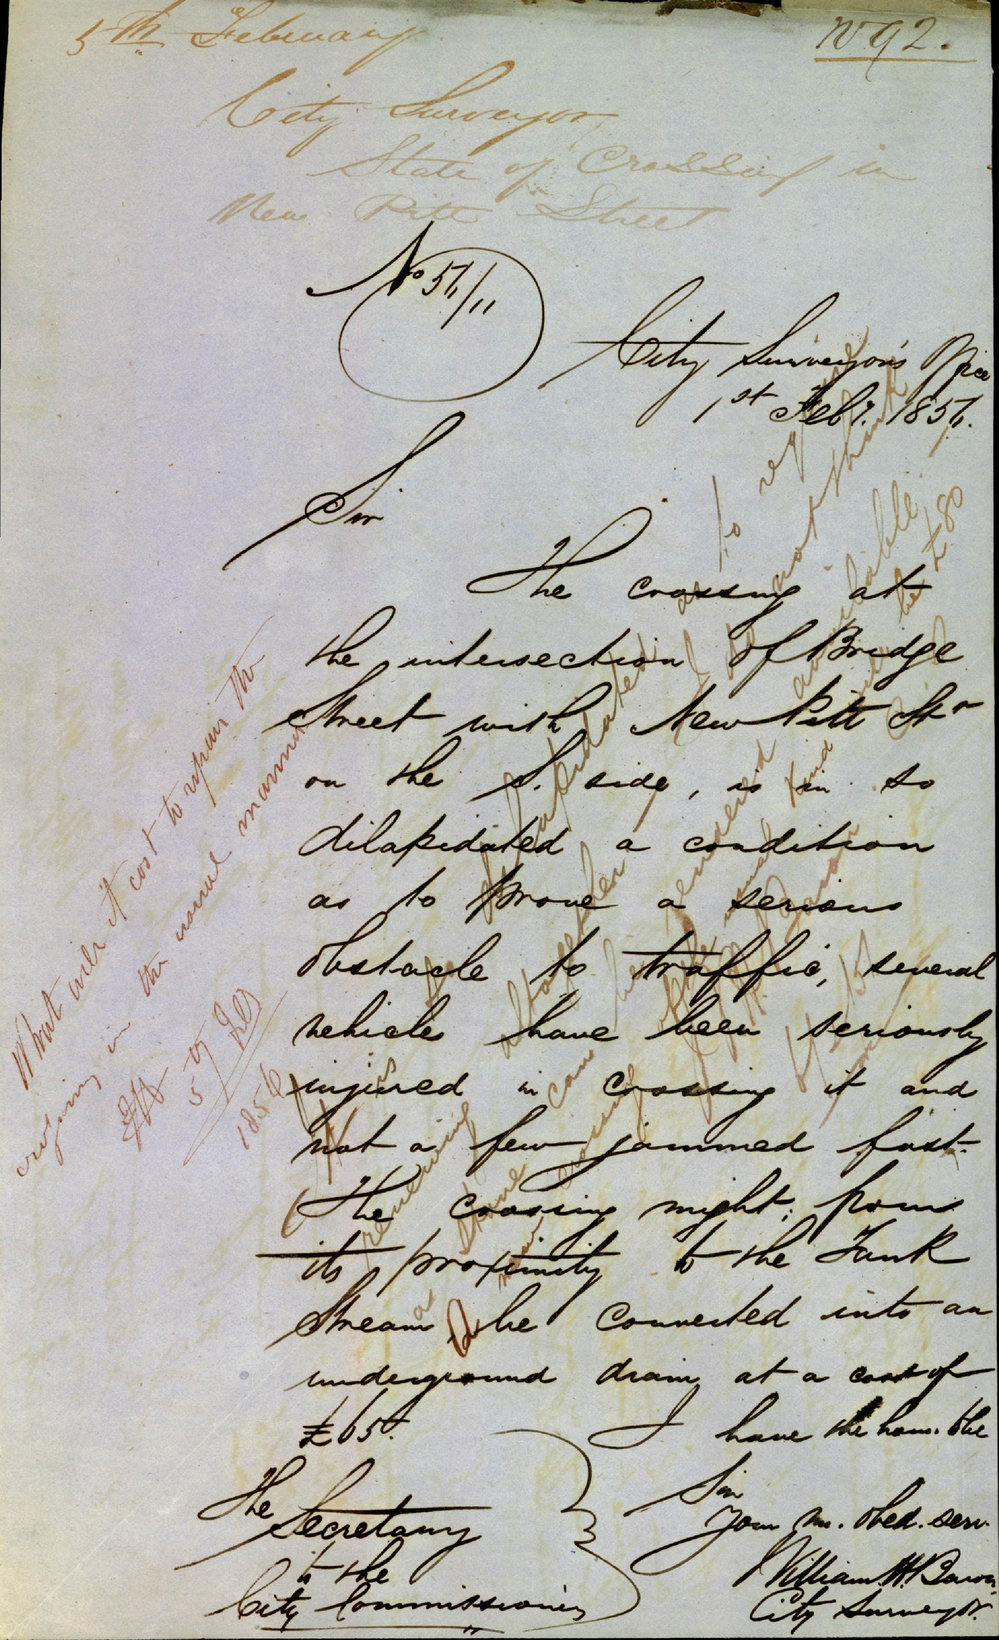 5th February
No 92.
City Surveyor
State of Crossing in
New Pitt Street
No 56/11
City Surveyor's Office
1st Feby. 1856.
Sir
The crossing at
the intersection of Bridge
Street with New Pitt Str
on the S. side, is in so
dilapidated a condition
as to prove a serious
obstacle to traffic, several
vehicles have been seriously
injured in crossing it and
not a few jammed fast.
The crossing might, from
its proximity to the Tank
Stream, be converted into an
underground drain, at a cost of
£65.
I have the hon. to be
Sir
Your m. obed. serv.
William H. 
City Surveyor.
The
Secretary
to the
City Commissioners
What will it cost to repair the
crossing in the usual manner
5 Feb
1856
dilapidated as to require
renewing altogether I do not think
a stone can be rendered available
A new crossing of the usual kind will be £80